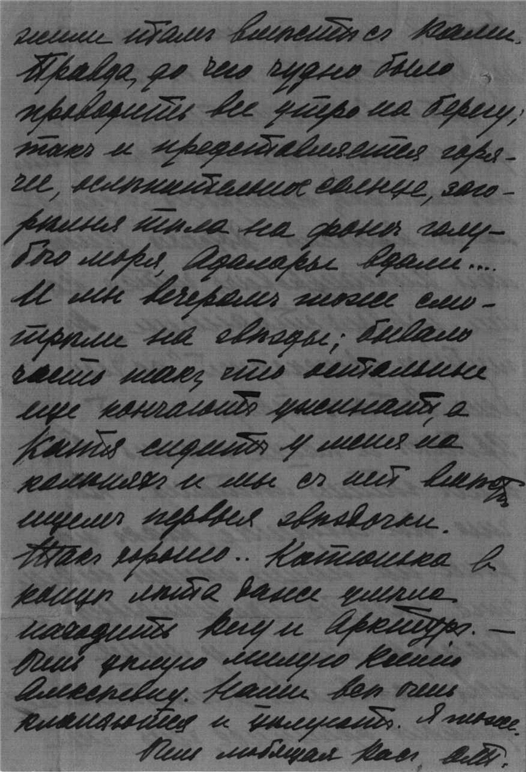 жили тамъ вмѣстѣ съ Вами.
Правда, до чего чудно было
проводить все утро на берегу;
такъ и представляется горя-
чее, ослѣпительное солнце, заго-
рѣлыя тѣла на фонѣ голу-
бого моря, Адалары вдали....
И мы вечеромъ тоже смо-
трѣли на звѣзды; бывало
часто такъ, что остальные
еще кончаютъ ужинать, а
Катя сидитъ у меня на
колѣняхъ и мы съ ней
ищемъ первыя звѣздочки.
Такъ хорошо.. Катюлька въ
концѣ лѣта даже умѣла
находить Вегу и Арктуръ. —
Очень цѣлую милую Ксенію
Алексѣевну. Наши всѣ очень
кланяются и цѣлуютъ. Я тоже.
Очень любящая Васъ